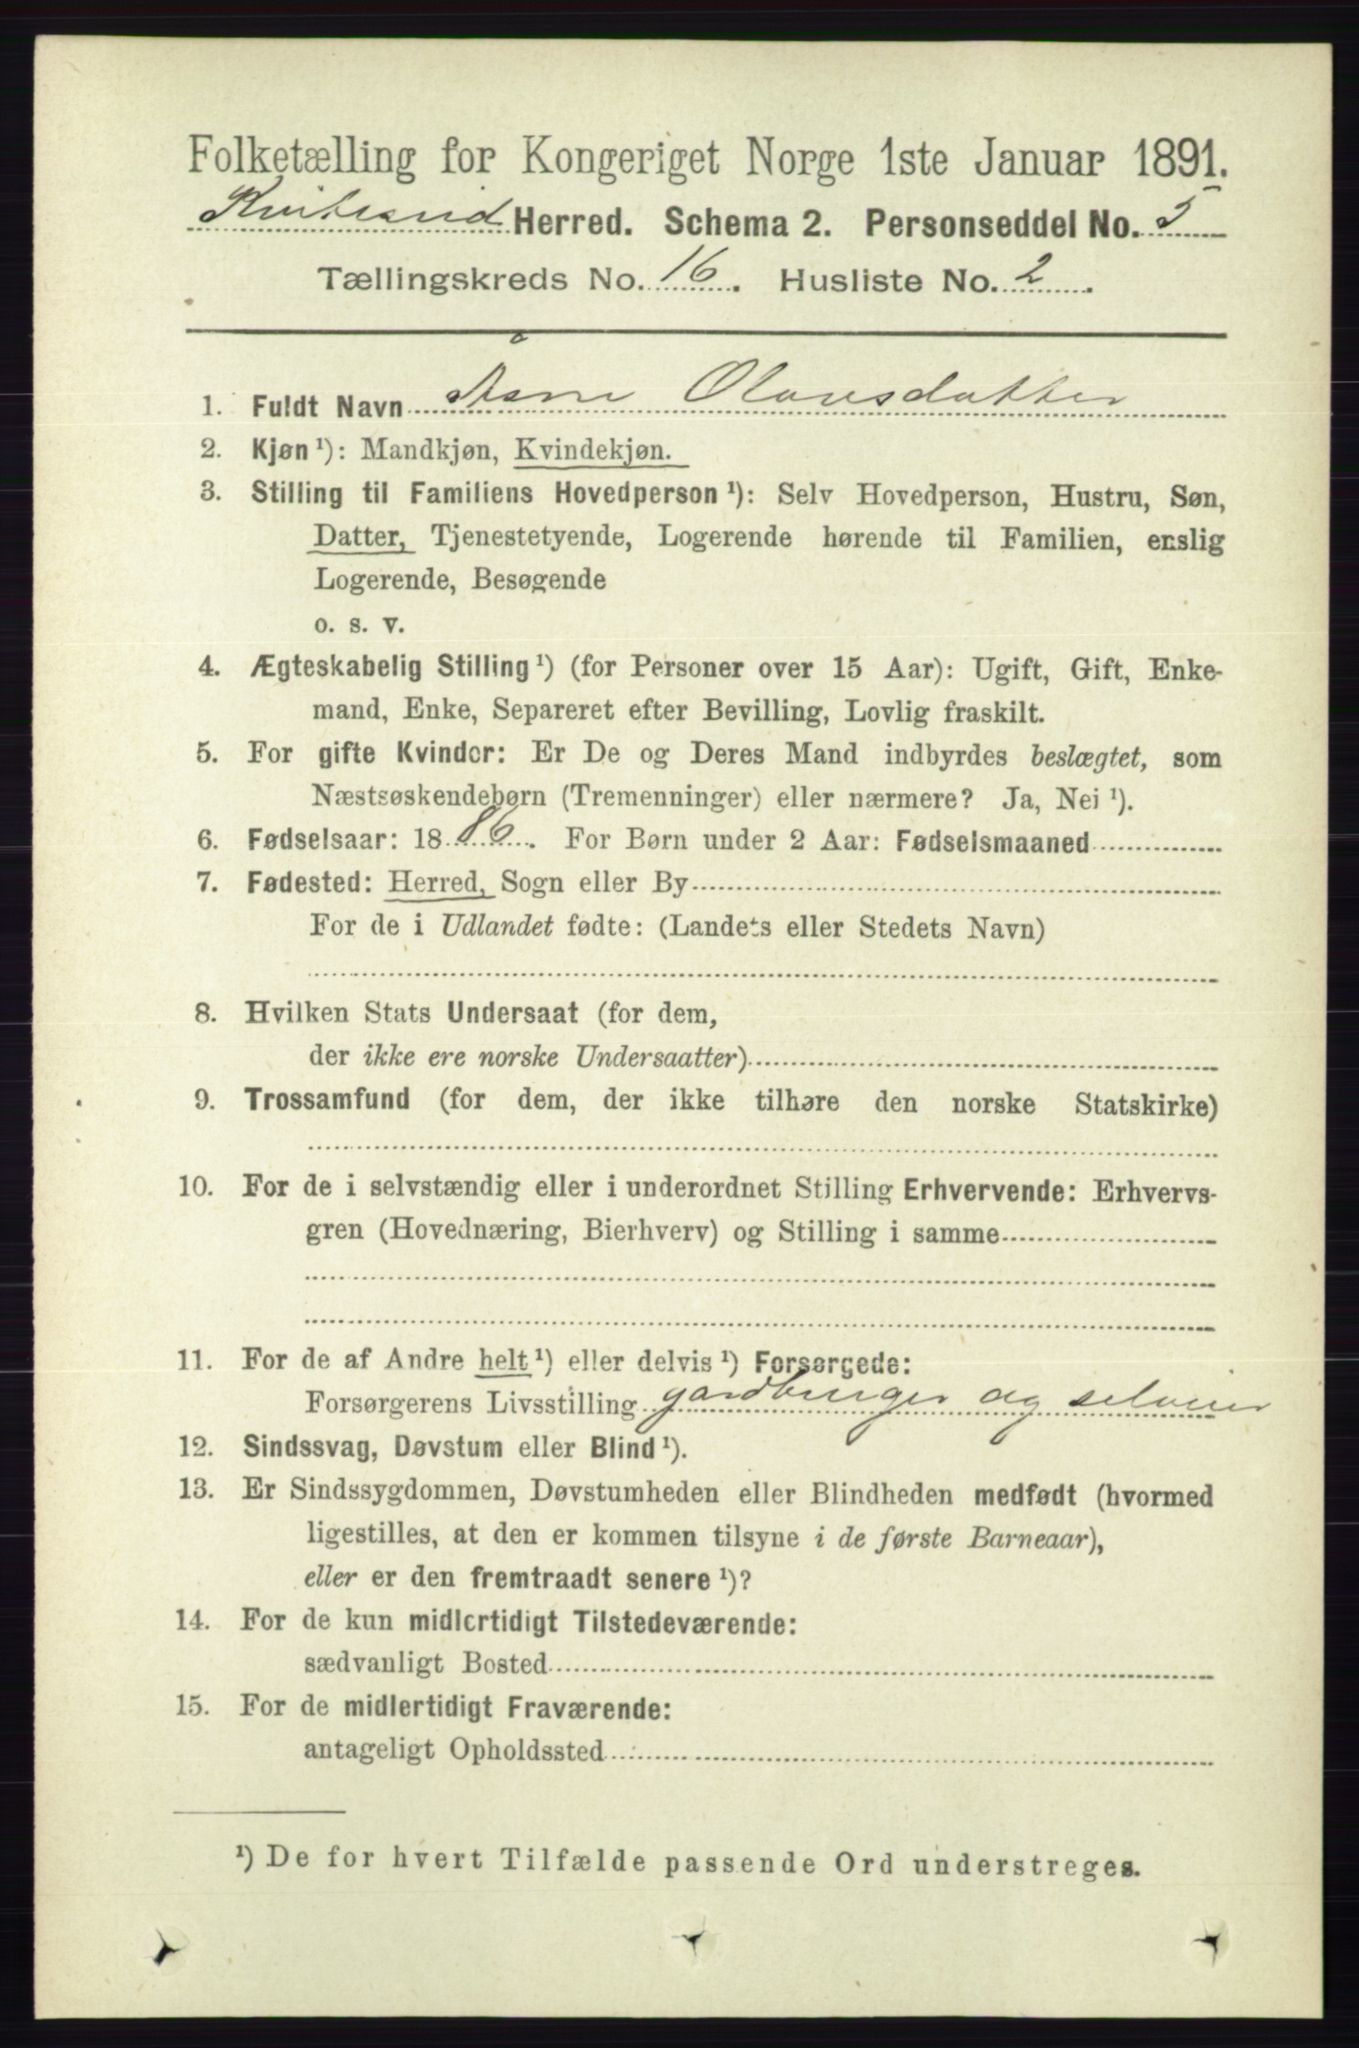 Folketælling for Kongeriget Norge 1ste Januar 1891.
Kviteseid Herred. Schema 2. Personseddel No. 5
Tællingskreds No. 16. Husliste No. 2.
1. Fuldt Navn Åsne Olavsdatter
2. Kjøn ¹): Mandkjøn, Kvindekjøn.
3. Stilling til Familiens Hovedperson ¹): Selv Hovedperson, Hustru, Søn,
Datter, Tjenestetyende, Logerende hørende til Familien, enslig
Logerende, Besøgende
o. s. v.
4. Ægteskabelig Stilling ¹) (for Personer over 15 Aar): Ugift, Gift, Enke-
mand, Enke, Separeret efter Bevilling, Lovlig fraskilt.
5. For gifte Kvinder: Er De og Deres Mand indbyrdes beslægtet, som
Næstsøskendebørn (Tremenninger) eller nærmere? Ja, Nei ¹).
6. Fødselsaar: 1886. For Børn under 2 Aar: Fødselsmaaned
7. Fødested: Herred, Sogn eller By
For de i Udlandet fødte: (Landets eller Stedets Navn)
8. Hvilken Stats Undersaat (for dem,
der ikke ere norske Undersaatter)
9. Trossamfund (for dem, der ikke tilhøre den norske Statskirke)
10. For de i selvstændig eller i underordnet Stilling Erhvervende: Erhvervs-
gren (Hovednæring, Bierhverv) og Stilling i samme
11. For de af Andre helt ¹) eller delvis ¹) Forsørgede:
Forsørgerens Livsstilling gardbruger og selveier
12. Sindssvag, Døvstum eller Blind ¹).
13. Er Sindssygdommen, Døvstumheden eller Blindheden medfødt (hvormed
ligestilles, at den er kommen tilsyne i de første Barneaar),
eller er den fremtraadt senere ¹)?
14. For de kun midlertidigt Tilstedeværende:
sædvanligt Bosted
15. For de midlertidigt Fraværende:
antageligt Opholdssted
¹) De for hvert Tilfælde passende Ord understreges.